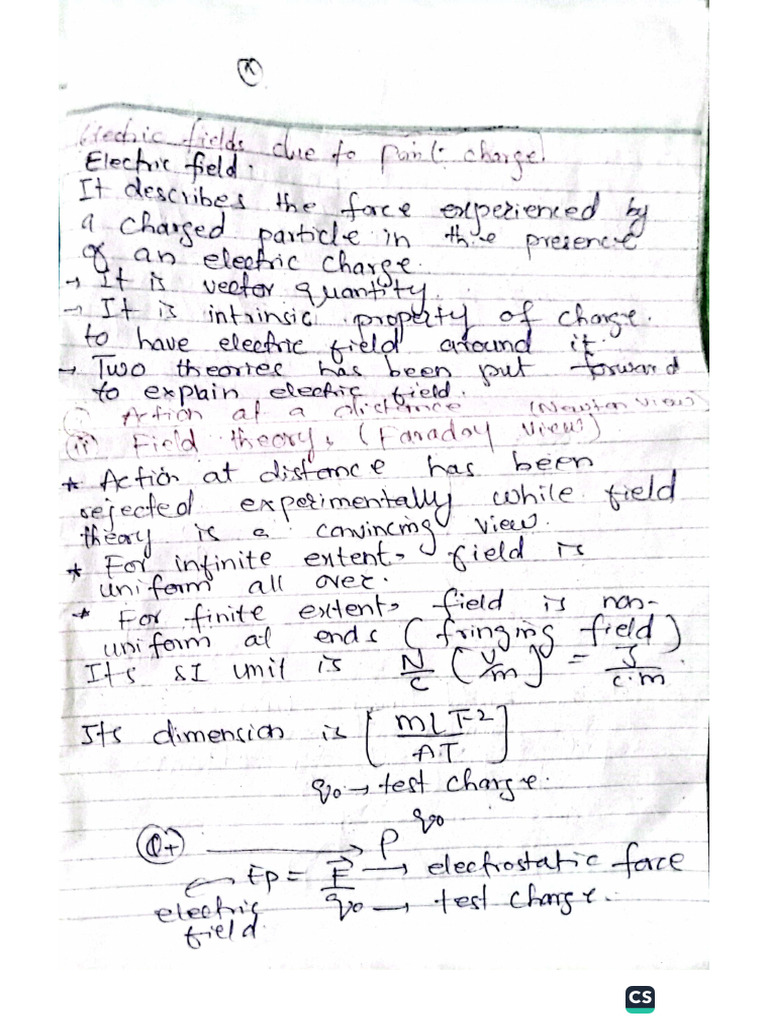 Electric fields due to point charge.
Electric field.
It describes the force experienced by
a charged particle in the presence
of an electric charge.
→ It is vector quantity.
→ It is intrinsic property of charge.
to have electric field around it.
→ Two theories has been put forward
to explain electric field.
(i) Action at a distance (Newton view)
(ii) Field theory, (Faraday view)
* Action at distance has been
rejected experimentally while field
theory is a convincing view.
* For infinite extent, field is
uniform all over.
* For finite extent, field is non-
uniform at ends (fringing field)
Its SI unit is N/C (V/m) = J/C.m
Its dimension is [MLT-2/AT]
q0 → test charge.
q0
Q+ → P
Ep = F → electrostatic force
q0 → test charge.
electric
field.
CS